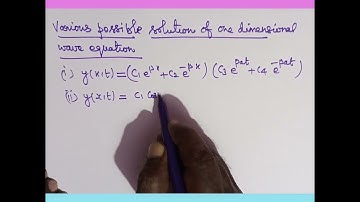 Various possible solution of one dimensional
wave equation
(i) y(x,t) = (C₁ e^{px} + C₂ e^{-px}) (C₃ e^{pat} + C₄ e^{-pat})
(ii) y(x,t) = C₁ Co